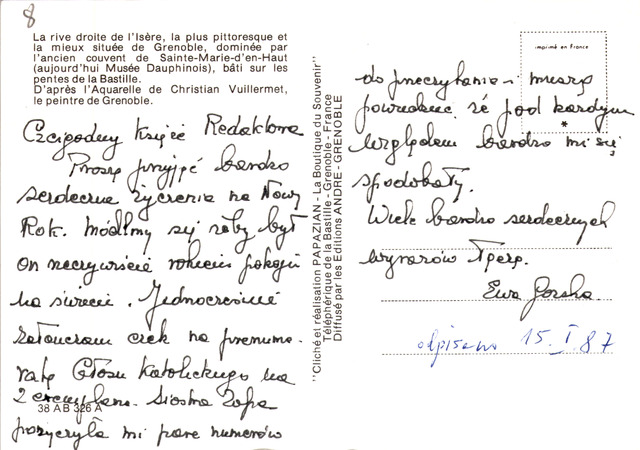 8
La rive droite de l'Isère, la plus pittoresque et
la mieux située de Grenoble, dominée par
l'ancien couvent de Sainte-Marie-d'en-Haut
(aujourd'hui Musée Dauphinois), bâti sur les
pentes de la Bastille.
D'après l'Aquarelle de Christian Vuillermet,
le peintre de Grenoble.
Czcigodny Księże Redaktorze
Proszę przyjąć bardzo
serdeczne życzenia na Nowy
Rok. Módlmy się żeby był
on rzeczywiście rokiem pokoju
na świecie. Jednocześnie
załączam czek na prenume-
ratę Głosu Katolickiego na
2 egzemplarze. Siostra Zofia
pożyczyła mi parę numerów
38 AB 326 A
"Cliché et réalisation PAPAZIAN - La Boutique du Souvenir"
Téléphérique de la Bastille - Grenoble - France
Diffusé par les Editions ANDRE - GRENOBLE
imprimé en France
*
do przeczytania i muszę
powiedzieć że pod każdym
względem bardzo mi się
spodobały.
Wiele bardzo serdecznych
wyrazów łączę.
Ewa
odpisano 15. I. 87